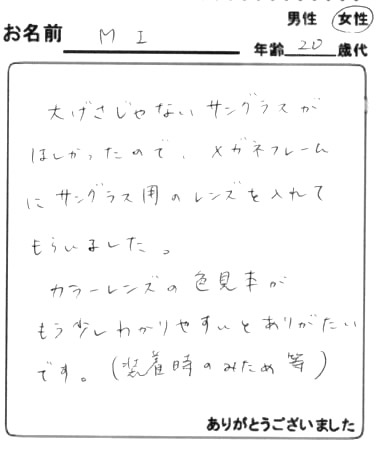 男性 女性
お名前 M I
年齢 20 歳代
大げさじゃないサングラスが
ほしかったので、メガネフレーム
にサングラス用のレンズを入れて
もらいました。
カラーレンズの色見本が
もう少しわかりやすいとありがたい
です。(装着時のみため等)
ありがとうございました